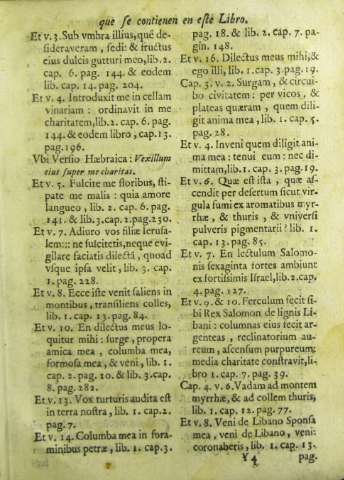 que se contienen en este Libro.
Et v. 3. Sub vmbra illius, qué de-
sideraveram, sedi: & fructus
eius dulcis gutturi meo, lib. 2.
cap. 6. pag. 144. & eodem
lib. cap. 14. pag. 204.
Et v. 4. Introduxit me in cellam
vinariam: ordinavit in me
charitatem, lib. 2. cap. 6. pag.
144. & eodem libro, cap. 13.
pag. 196.
Vbi Versio Hæbraica: Vexillum
eius super me charitas.
Et v. 5. Fulcite me floribus, sti-
pate me malis: quia amore
langueo, lib. 2. cap. 6. pag.
141. & lib. 3. cap. 2. pag. 230.
Et v. 7. Adiuro vos filiæ Ierusa-
lem::: ne suscitetis, neque evi-
gilare faciatis dilectá, quoad
vsque ipsa velit, lib. 3. cap.
1. pag. 228.
Et v. 8. Ecce iste venit saliens in
montibus, transiliens colles,
lib. 1. cap. 13. pag. 84.
Et v. 10. En dilectus meus lo-
quitur mihi: surge, propera
amica mea, columba mea,
formosa mea, & veni, lib. 1.
cap. 2. pag. 10. & lib. 3. cap.
8. pag. 282.
Et v. 13. Vox turturis audita est
in terra nostra, lib. 1. cap. 2.
pag. 7.
Et v. 14. Columba mea in fora-
minibus petræ, lib. 1. cap. 3.
pag. 18. & lib. 2. cap. 7. pa-
gin. 148.
Et v. 16. Dilectus meus mihi, &
ego illi, lib. 1. cap. 3. pag. 19.
Cap. 3. v. 2. Surgam, & circui-
bo civitatem: per vicos, &
plateas quæram, quem dili-
git anima mea, lib. 1. cap. 5.
pag. 28.
Et v. 4. Inveni quem diligit ani-
ma mea: tenui eum: nec di-
mittam, lib. 1. cap. 3. pag. 19.
Et v. 6. Quæ est ista, quæ as-
cendit per desertum sicut vir-
gula fumi ex aromatibus myr-
rhæ, & thuris, & vniversi
pulveris pigmentarii? lib. 1.
cap. 13. pag. 85.
Et v. 7. En lectulum Salomo-
nis sexaginta fortes ambiunt
ex fortissimis Israel, lib. 2. cap.
4. pag. 127.
Et v. 9. & 10. Ferculum fecit si-
bi Rex Salomon de lignis Li-
bani: columnas eius fecit ar-
genteas, reclinatorium au-
reum, ascensum purpureum;
media charitate constravit, li-
bro 1. cap. 7. pag. 39.
Cap. 4. v. 6. Vadam ad montem
myrrhæ, & ad collem thuris,
lib. 1. cap. 12. pag. 77.
Et v. 8. Veni de Libano Sponsa
mea, veni de Libano, veni:
coronaberis, lib. 1. cap. 13.
¥4 pag.